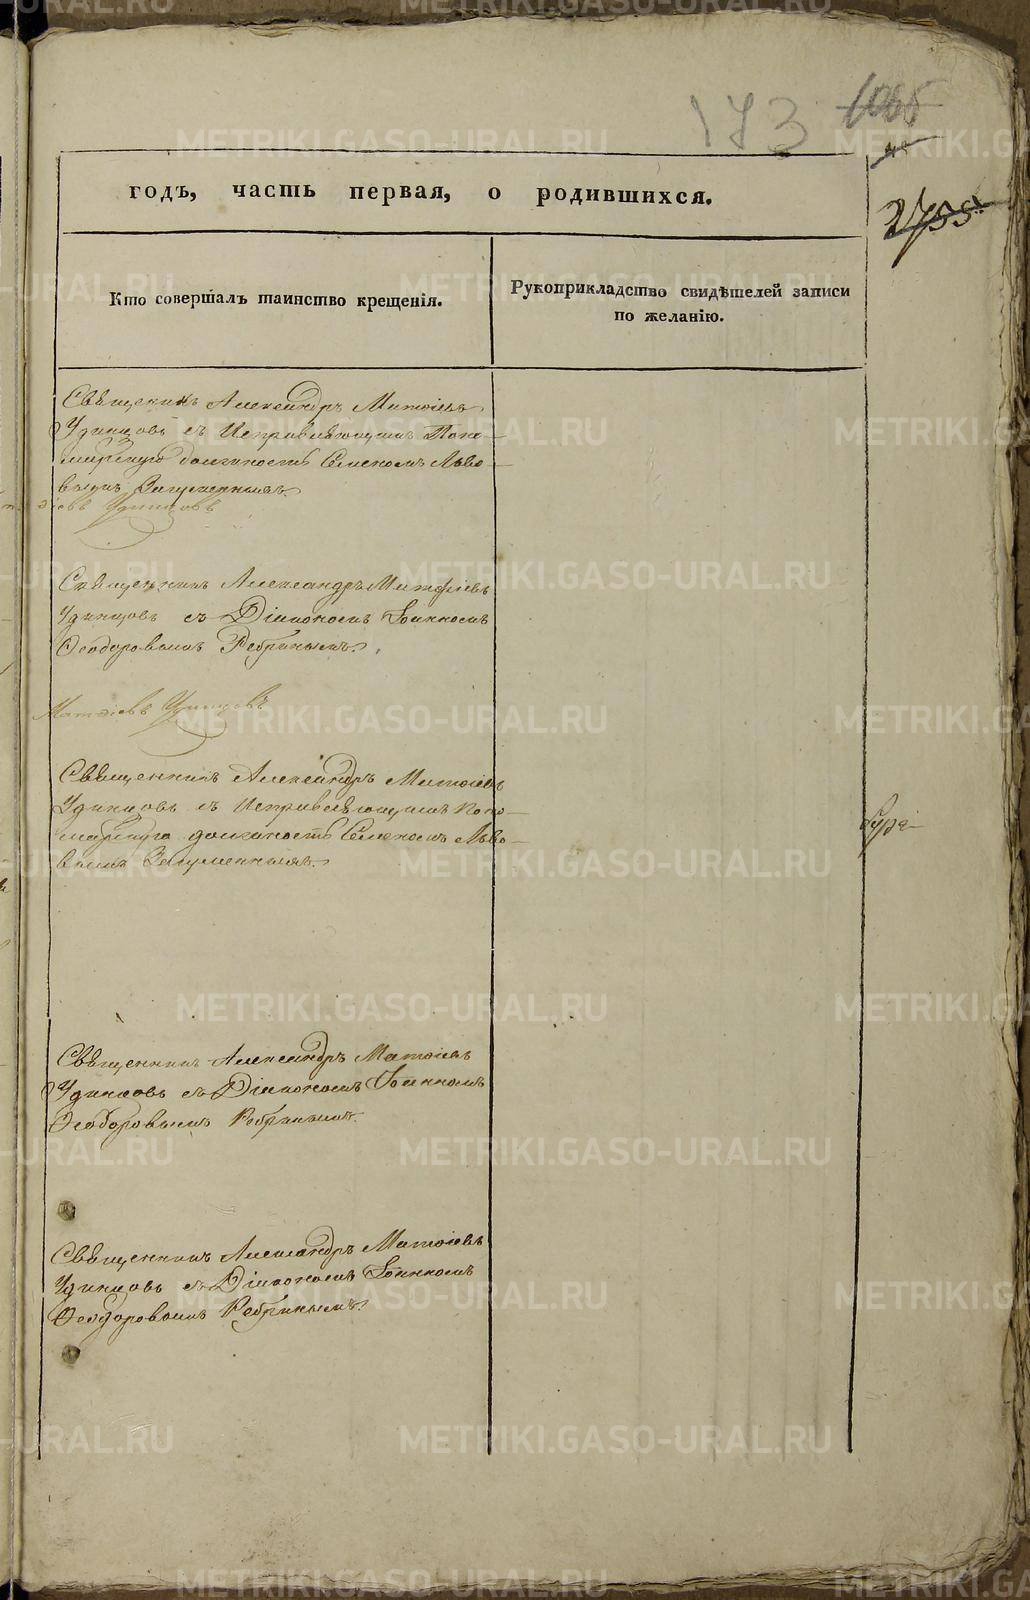 173
2755
годъ, часть первая, о родившихся.
Кто совершалъ таинство крещенія.
Рукоприкладство свидѣтелей записи
по желанію.
Священникъ Александръ Матѳіевъ
Удинцовъ съ Исправляющимъ Поно-
марскую должность Семеномъ Льво-
вымъ Загуменнымъ.
Удинцовъ
Священникъ Александръ Матѳіевъ
Удинцовъ съ Діакономъ Іоанномъ
Ѳеодоровымъ Ребринымъ.
Матѳіевъ Удинцовъ
Священникъ Александръ Матѳіевъ
Удинцовъ съ Исправляющимъ Поно-
марскую должность Семеномъ Льво-
вымъ Загуменнымъ.
Священникъ Александръ Матѳіевъ
Удинцовъ съ Діакономъ Іоанномъ
Ѳеодоровымъ Ребринымъ.
Священникъ Александръ Матѳіевъ
Удинцовъ съ Діакономъ Іоанномъ
Ѳеодоровымъ Ребринымъ.
METRIKI.GASO-URAL.RU